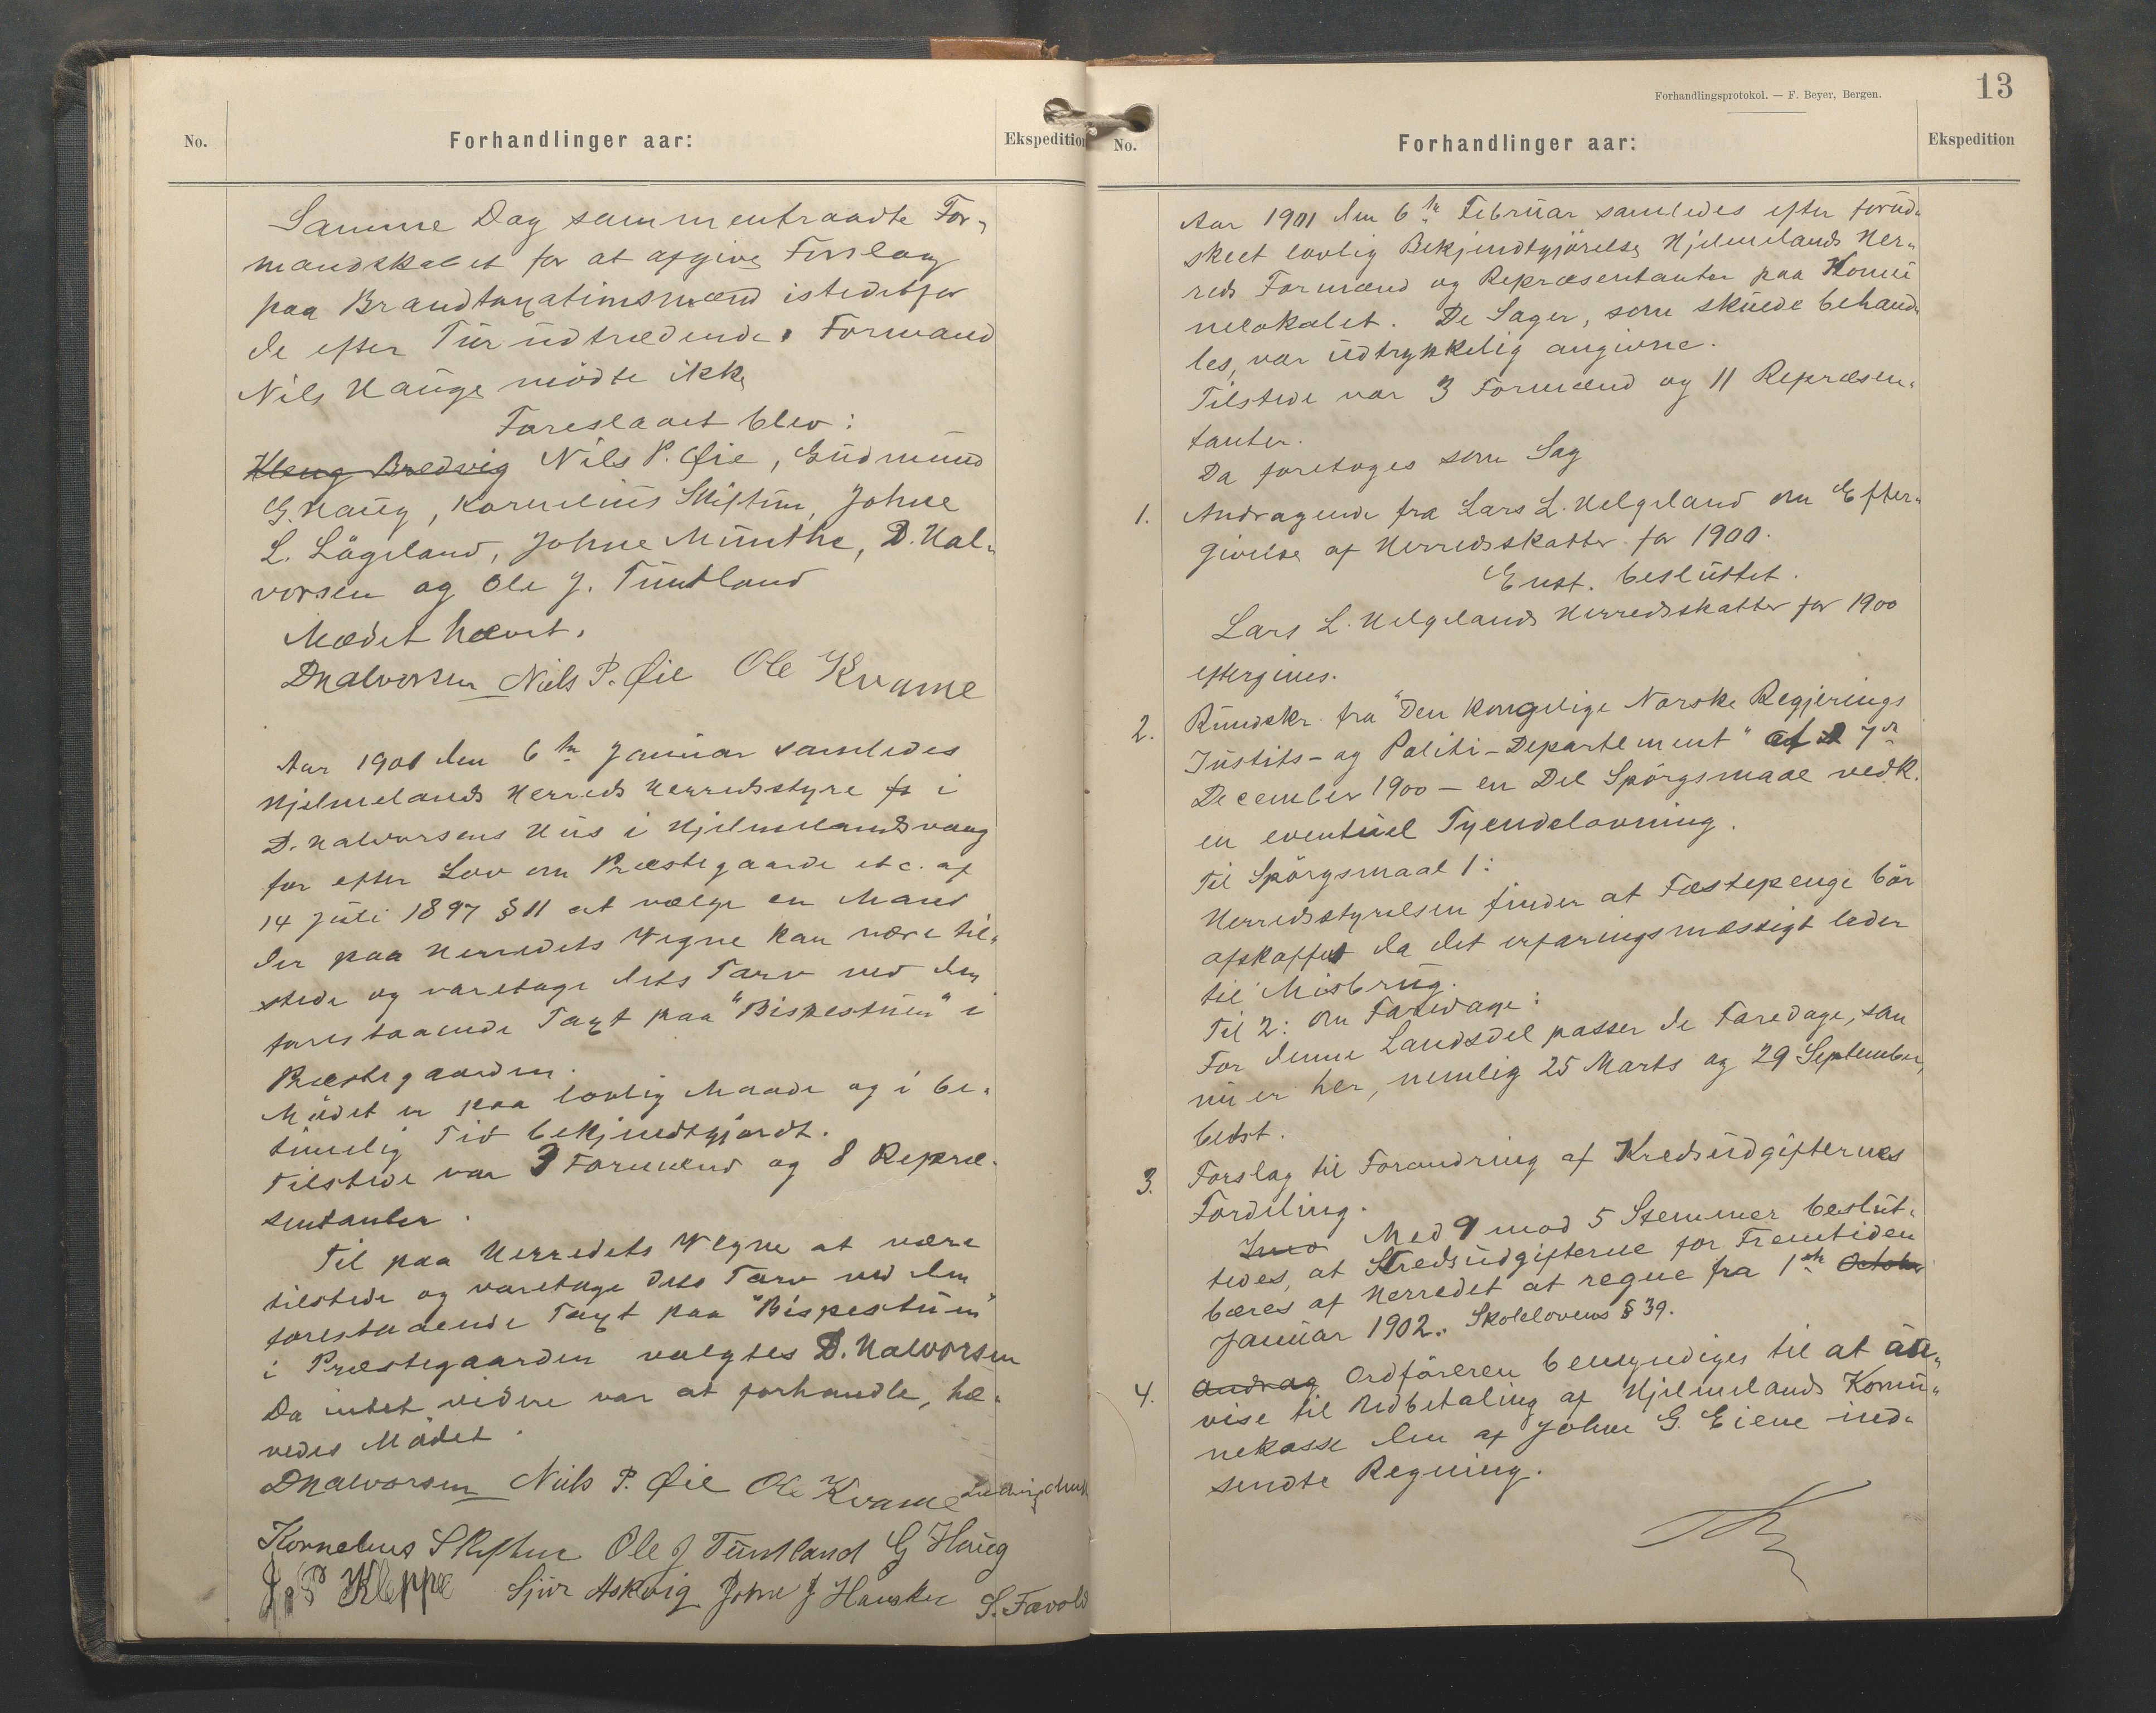 No.
Forhandlinger aar:
Ekspedition
Samme Dag sammentraadte For-
mandskabet for at afgive Forslag
paa Brandtaxationsmænd istedetfor
de efter Tur udtrædende. Formand
Nils Hauge mödte ikke
Foreslaaet blev:
Kleng Bredvig Nils P. Øie, Gudmund
G. Haug, Kornelius Skiftun, Johne
L. Lögeland, Johne Munthe, D. Hal-
vorsen og Ole J. Tuntland
Mødet hævet.
DHalvorsen Niels P. Øie Ole Kvame
Aar 1901 den 6te Januar samledes
Hjelmelands Herreds Herredsstyre fr i
D. Halvorsens Hus i Hjelmelandsvaag
for efter Lov om Præstegaarde etc. af
14 Juli 1897 § 11 at vælge en Mand
der paa Herredets Vegne kan være til-
stede og varetage dets Tarv ved den
forestaaende Taxt paa "Bispestuen" i
Præstegaarden.
Mödet er paa lovlig Maade og i be-
timelig Tid bekjendtgjordt.
Tilstede var 3 Formænd og 8 Repræ-
sentanter.
Til paa Herredets Vegne at være
tilstede og varetage dets Tarv ved den
forestaaende Taxt paa "Bispestuen"
i Præstegaarden valgtes D. Halvorsen
Da intet videre var at forhandle, hæ-
vedes Mödet.
DHalvorsen Niels P. Øie Ole Kvame
Kornelius Skiftun Ole J Tuntland G Haug
J. P Kleppe Sjur Askvig Johne J Hausken S. Favold
Forhandlingsprotokol. — F. Beyer, Bergen.
13
No.
Forhandlinger aar:
Ekspedition
Aar 1901 den 6te Februar samledes efter forud-
skeet lovlig Bekjendtgjörelse Hjelmelands Her-
reds Formænd og Repræsentanter paa Komu
nelokalet. De Sager, som skulde behand-
les, var udtrykkelig angivne.
Tilstede var 3 Formænd og 11 Repræsen-
tanter.
Da foretoges som Sag
1. Andragende fra Lars L. Helgeland om Efter-
givelse af Herredsskatter for 1900.
Enst. besluttet.
Lars L. Helgelands Herredsskatter for 1900
eftergives.
2. Rundskr. fra "Den kongelige Norske Regjerings
Justits- og Politi-Departement" af 7de
December 1900 - en Del Spörgsmaal vedk.
en eventuel Tyendelovning.
Til Spörgsmaal 1:
Herredsstyrelsen finder at Fæstepenge bör
afskaffes da det erfaringsmæssigt leder
til Misbrug.
Til 2: Om Faredage:
For denne Landsdel passer de Faredage, som
nu er her, nemlig 25 Marts og 29 September,
bedst.
3. Forslag til Forandring af Kredsudgifternes
Fordeling.
Med 9 mod 5 Stemmer beslut-
tedes, at Kredsudgifterne for Fremtiden
bæres af Herredet at regne fra 1ste October
Januar 1902. Skolelovens § 39.
4. Andrag Ordföreren bemyndiges til at an-
vise til Udbetaling af Hjelmelands Komu-
nekasse den af Johne G. Eiene ind-
sendte Regning.